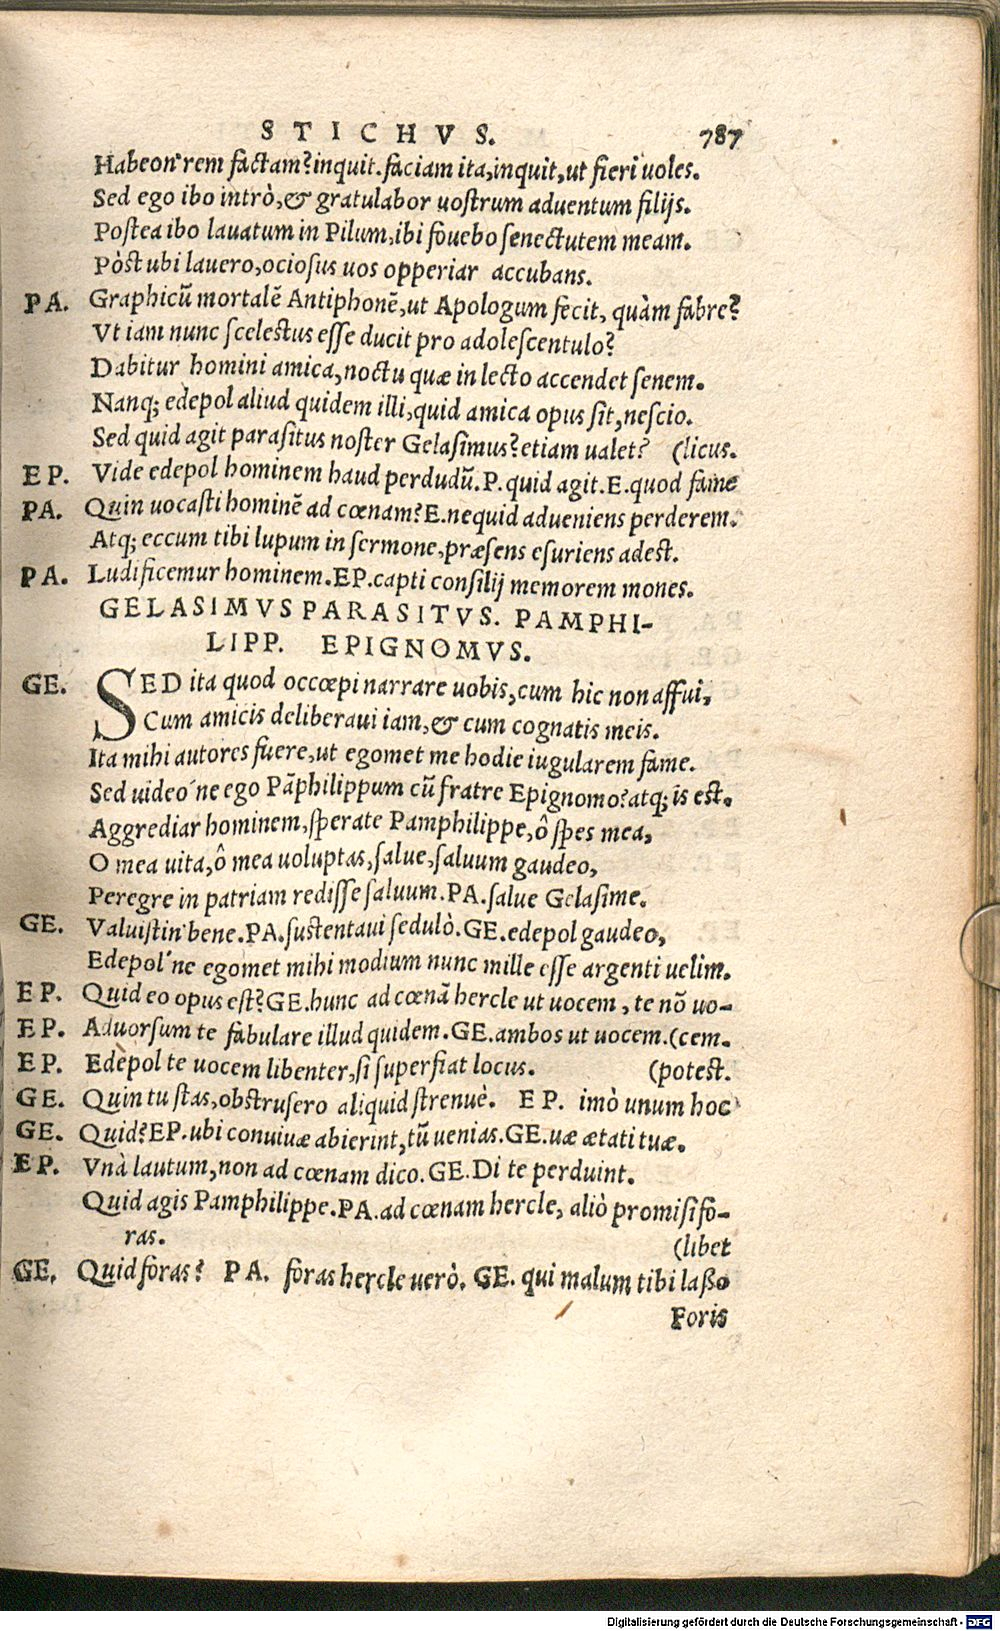 STICHVS. 787
Habeon'rem factam?inquit.faciam ita,inquit,ut fieri uoles.
Sed ego ibo intrò,& gratulabor uostrum aduentum filijs.
Postea ibo lauatum in Pilum,ibi fouebo senectutem meam.
Pòst ubi lauero,ociosus uos opperiar accubans.
PA. Graphicū mortalē Antiphonē,ut Apologum fecit, quàm fabre?
Vt iam nunc scelestus esse ducit pro adolescentulo?
Dabitur homini amica,noctu quæ in lecto accendet senem.
Nanq; edepol aliud quidem illi,quid amica opus sit,nescio.
Sed quid agit parasitus noster Gelasimus?etiam ualet? (licus.
EP. Vide edepol hominem haud perdudū.P.quid agit.E.quod fame
PA. Quin uocasti hominē ad cœnam?E.nequid adueniens perderem.
Atq; eccum tibi lupum in sermone,præsens esuriens adest.
PA. Ludificemur hominem.EP.capti consilij memorem mones.
GELASIMVS PARASITVS. PAMPHI-
LIPP. EPIGNOMVS.
GE. SED ita quod occœpi narrare uobis,cum hic non affui,
Cum amicis deliberaui iam,& cum cognatis meis.
Ita mihi autores fuere,ut egomet me hodie iugularem fame.
Sed uideo'ne ego Pāphilippum cū fratre Epignomo?atq; is est.
Aggrediar hominem,sperate Pamphilippe,ô spes mea,
O mea uita,ô mea uoluptas,salue,saluum gaudeo,
Peregre in patriam redisse saluum.PA.salue Gelasime.
GE. Valuistin'bene.PA.sustentaui sedulò.GE.edepol gaudeo,
Edepol'ne egomet mihi modium nunc mille esse argenti uelim.
EP. Quid eo opus est?GE.hunc ad cœnā hercle ut uocem, te nō uo-
EP. Aduorsum te fabulare illud quidem.GE.ambos ut uocem.(cem.
EP. Edepol te uocem libenter,si superfiat locus. (potest.
GE. Quin tu stas,obstrusero aliquid strenuè. EP. imò unum hoc
GE. Quid?EP.ubi conuiuæ abierint,tū uenias.GE.uæ ætati tuæ.
EP. Vnà lautum,non ad cœnam dico.GE.Di te perduint.
Quid agis Pamphilippe.PA.ad cœnam hercle, aliò promisi fo-
ras. (libet
GE. Quid foras? PA. foras hercle uerò. GE. qui malum tibi laßo
Foris
Digitalisierung gefördert durch die Deutsche Forschungsgemeinschaft - DFG